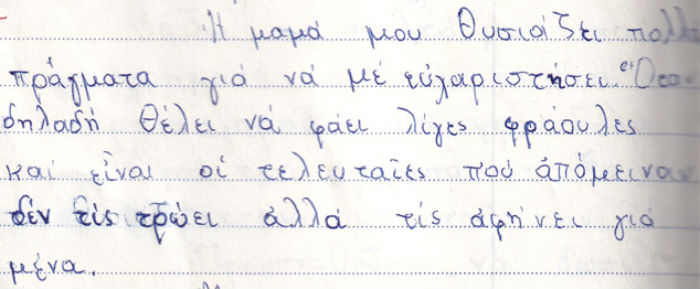 Ἡ μαμά μου θυσιάζει πολλά
πράγματα γιά νά μέ εὐχαριστήσει. Ὅταν
δηλαδή θέλει νά φάει λίγες φράουλες
καί εἶναι οἱ τελευταῖες πού ἀπόμειναν
δέν τίς τρώει ἀλλά τίς ἀφήνει γιά
μένα.